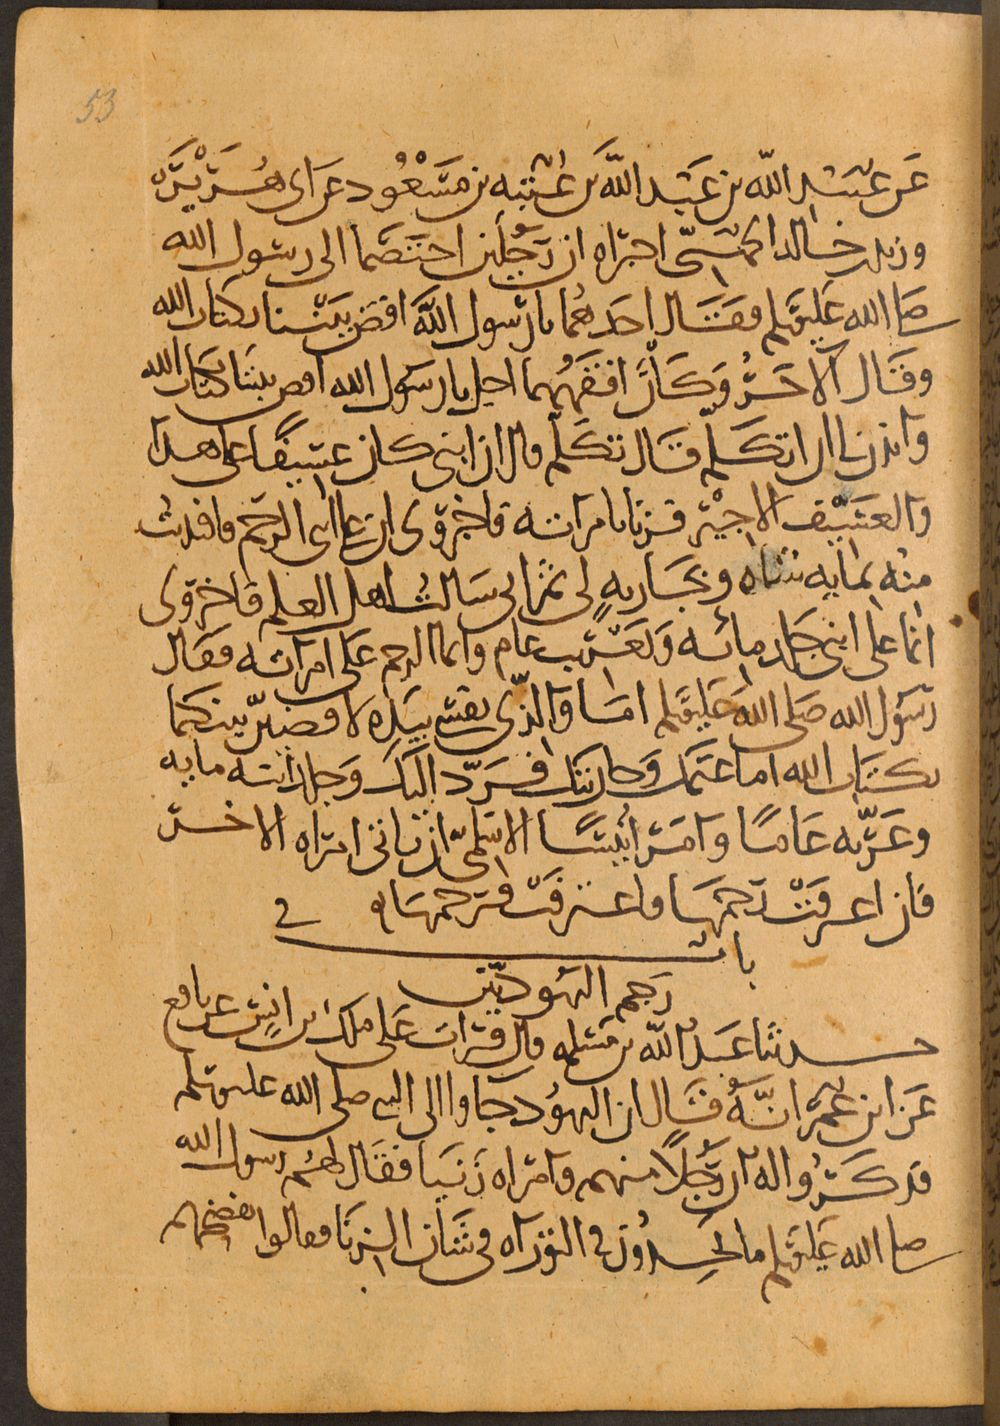 53
عن عبيد الله بن عبد الله بن عتبه بن مسعود عن ابى هريرة
وزيد بن خالد الجهنى اخبراه ان رجلين اختصما الى رسول الله
صلى الله عليه وسلم فقال احدهما يا رسول الله اقض بيننا بكتاب الله
وقال الاخر وكان افقههما اجل يا رسول الله اقض بيننا بكتاب الله
وائذن لى ان اتكلم قال تكلم قال ان ابنى كان عسيفا على هذا
والعسيف الاجير فزنا بامراته فاخبرونى ان على ابنى الرجم فافتديت
منه بمايه شاه وبجاريه لى ثم انى سالت اهل العلم فاخبرونى
انما على ابنى جلد مائه وتغريب عام وانما الرجم على امراته فقال
رسول الله صلى الله عليه وسلم اما والذى نفسى بيده لاقضين بينكما
بكتاب الله اما غنمك وجاريتك فرد اليك وجلد ابنه مايه
وغربه عاما وامر انيسا الاسلمى ان ياتى امراه الاخر
فان اعترفت رجمها فاعترفت فرجمها
باب فى
رجم اليهوديين
حدثنا عبد الله بن مسلمه قال قرات على ملك بن انس عن نافع
عن ابن عمر انه قال ان اليهود جاوا الى النبى صلى الله عليه وسلم
فذكروا له ان رجلا منهم وامراه زنيا فقال لهم رسول الله
صلى الله عليه وسلم ما تجدون فى التوراه فى شان الزنا فقالوا نفضحهم